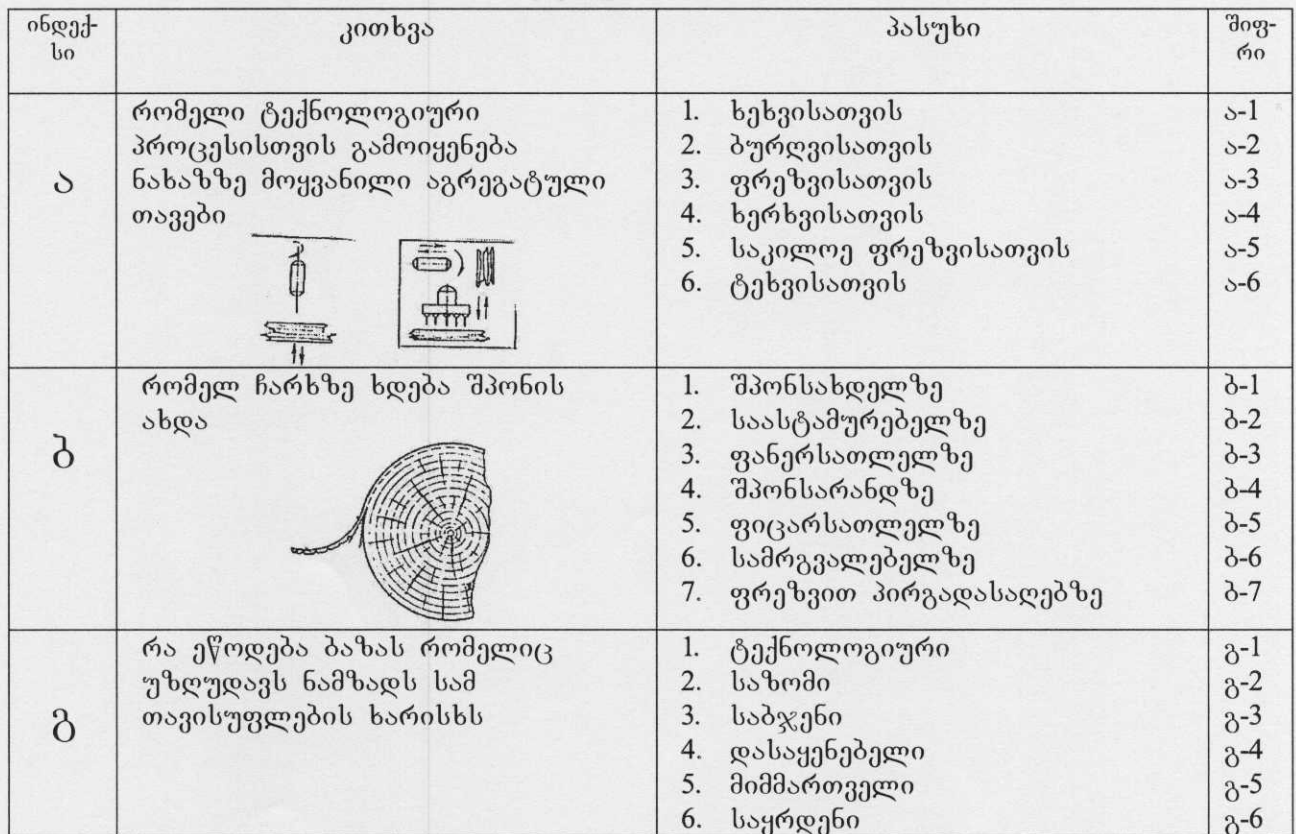 ინდექ-
სი
კითხვა
პასუხი
შიფ-
რი
ა
რომელი ტექნოლოგიური
პროცესისთვის გამოიყენება
ნახაზზე მოყვანილი აგრეგატული
თავები
1. ხეხვისათვის
2. ბურღვისათვის
3. ფრეზვისათვის
4. ხერხვისათვის
5. საკილოე ფრეზვისათვის
6. ტეხვისათვის
ა-1
ა-2
ა-3
ა-4
ა-5
ა-6
ბ
რომელ ჩარხზე ხდება შპონის
ახდა
1. შპონსახდელზე
2. საასტამურებელზე
3. ფანერსათლელზე
4. შპონსარანდზე
5. ფიცარსათლელზე
6. სამრგვალებელზე
7. ფრეზვით პირგადასაღებზე
ბ-1
ბ-2
ბ-3
ბ-4
ბ-5
ბ-6
ბ-7
გ
რა ეწოდება ბაზას რომელიც
უზღუდავს ნამზადს სამ
თავისუფლების ხარისხს
1. ტექნოლოგიური
2. საზომი
3. საბჯენი
4. დასაყენებელი
5. მიმმართველი
6. საყრდენი
გ-1
გ-2
გ-3
გ-4
გ-5
გ-6